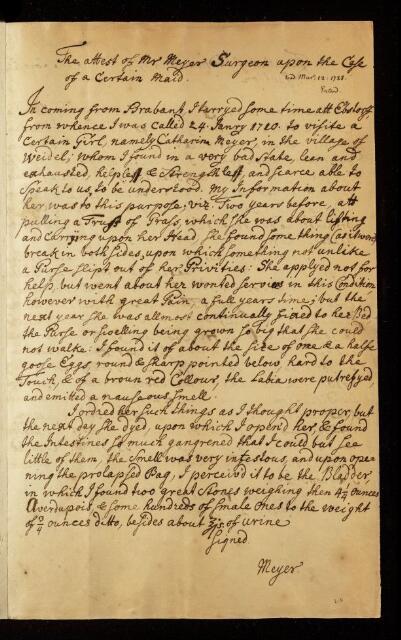 The attest of Mr Meyer Surgeon upon the Case
of a Certain Maid.
Read
In coming from Brabant, I tarryed some time att
from whence I was Called 24. Janry 1720. to visite a
Certain Girl, namely Catharin Meyer, in the village of
Weidel; whom I found in a very bad state, lean and
exhausted, helpless & strengthless, and scarce able to
speak to us, to be understood. my Information about
her was to this purpose, viz. Two years before, att
pulling a Truss of Grass, which she was about lifting
and Carrying upon her Head, she found something (as it were)
break in both sides, upon which something not unlike
a Purse slipt out of her Privities: She applyed not for
help, but went about her wonted services in this Condition
however with great Pain, a full years time; but the
next year she was allmost continually fixed to her Bed
the Purse or swelling being grown so big that she could
not walke: I found it of about the size of one & a halfe
goose Eggs, round & sharp pointed below, hard to the
Touch, & of a broun red Collour, the Labia were putrefyed,
and emitted a nauseous smell.
I ordred her such things as I thought proper, but
the next day she dyed, upon which I open'd her, & found
the Intestines so much gangrened that I could but see
little of them, the smell was very infestous, and upon ope-
ning the prolapsed Bag, I perceiv'd it to be the Bladder,
in which I found two great stones weighing then ounces
Averdupois, & some hundreds of smale ones to the weight
of ounces ditto, besides about of urine
Signed
Meyer